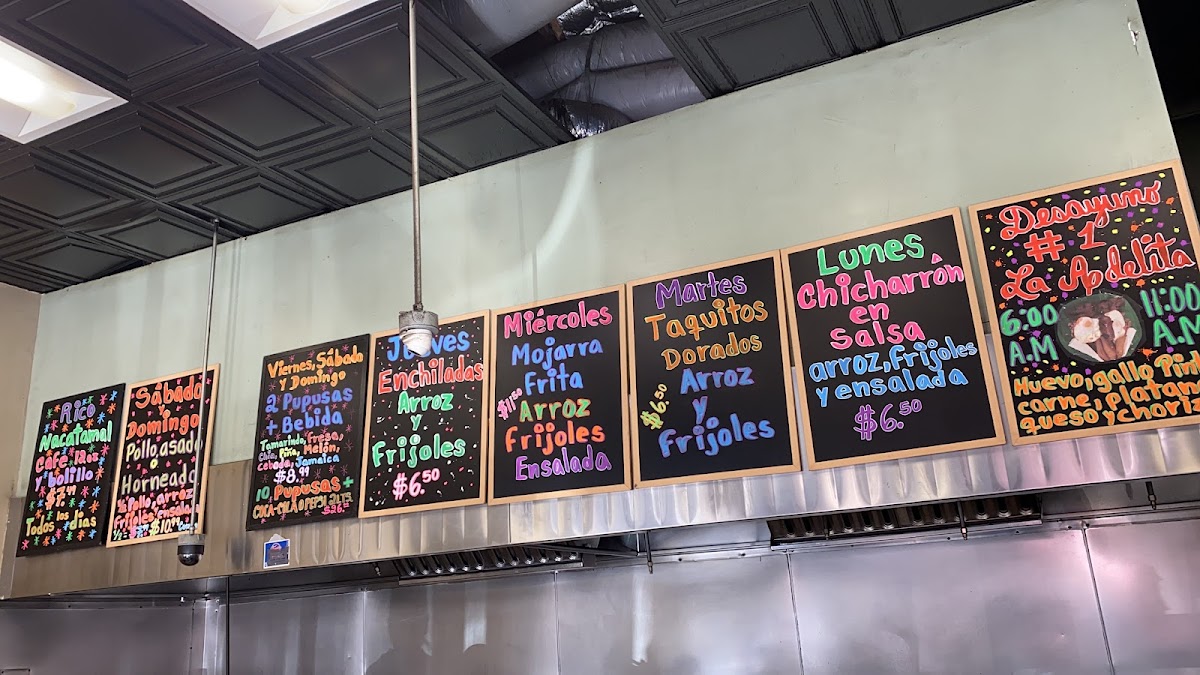 Rico
Nacatamal
Café
y bolillo
$7.99
Todos los días
Sábado
y
Domingo
Pollo, asado
o
Horneado
½ Pollo, arroz
frijoles, ensalada
$10.99
Viernes, Sábado
y Domingo
2 Pupusas
+ Bebida
Tamarindo, Fresa,
Chía, Piña, Melón,
Cebada, Jamaica
$8.99
10 Pupusas +
COCA-COLA O PEPSI 2LTS
Jueves
Enchiladas
Arroz
y
Frijoles
$6.50
Miércoles
Mojarra
Frita
$11.50
Arroz
Frijoles
Ensalada
Martes
Taquitos
Dorados
$6.50
Arroz
y
Frijoles
Lunes
Chicharrón
en
Salsa
arroz, frijoles
y ensalada
$6.50
Desayuno
#1
La Adelita
6:00 11:00
A.M A.M
Huevo, gallo Pint
carne, platan
queso y choriz